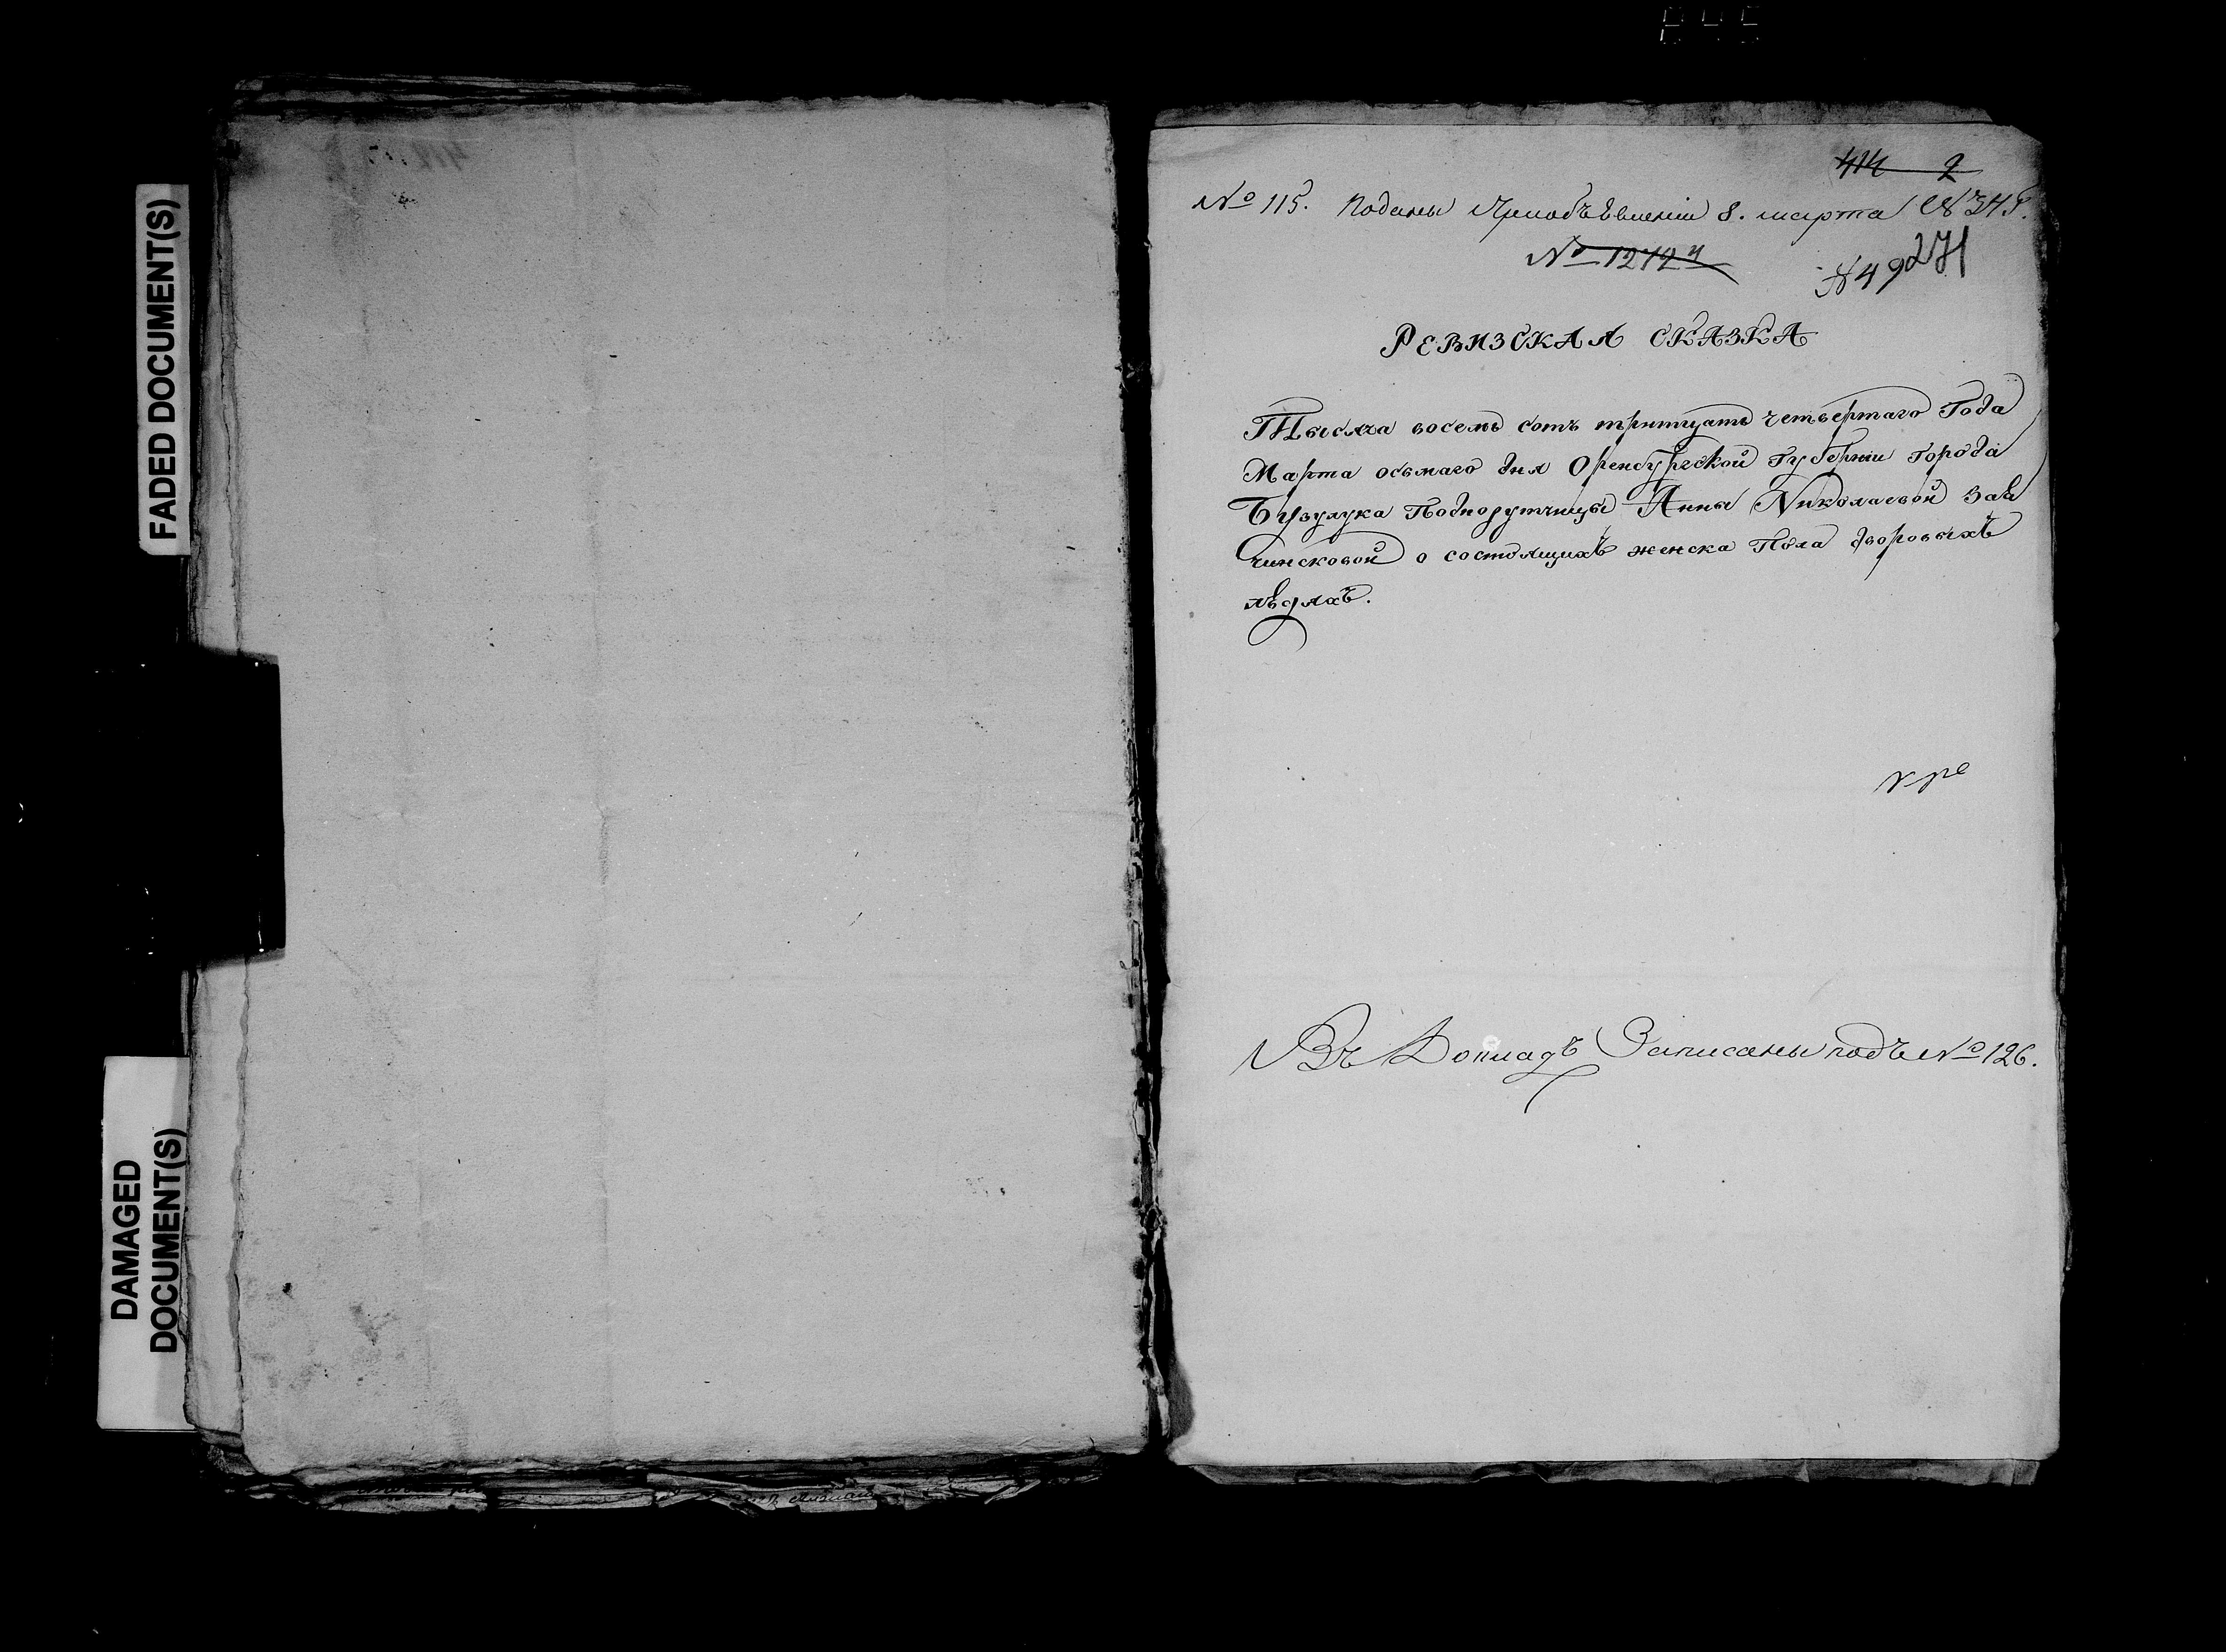 FADED DOCUMENT(S)
DAMAGED
DOCUMENT(S)
414 2
№ 115. Поданы при объявленiи 8. марта № 345.
№ 12724
№ 49 271
РЕВИЗСКАЯ СКАЗКА
Тысяча восемь сотъ тритцать четвертаго Года
Марта осьмаго дня Оренбургской Губернiи Города
Бузулука Подпорутчицы Анны Николаевой
о состоящихъ женска Пола дворовыхъ
людяхъ.
Въ Докладъ Записаны подъ № 126.